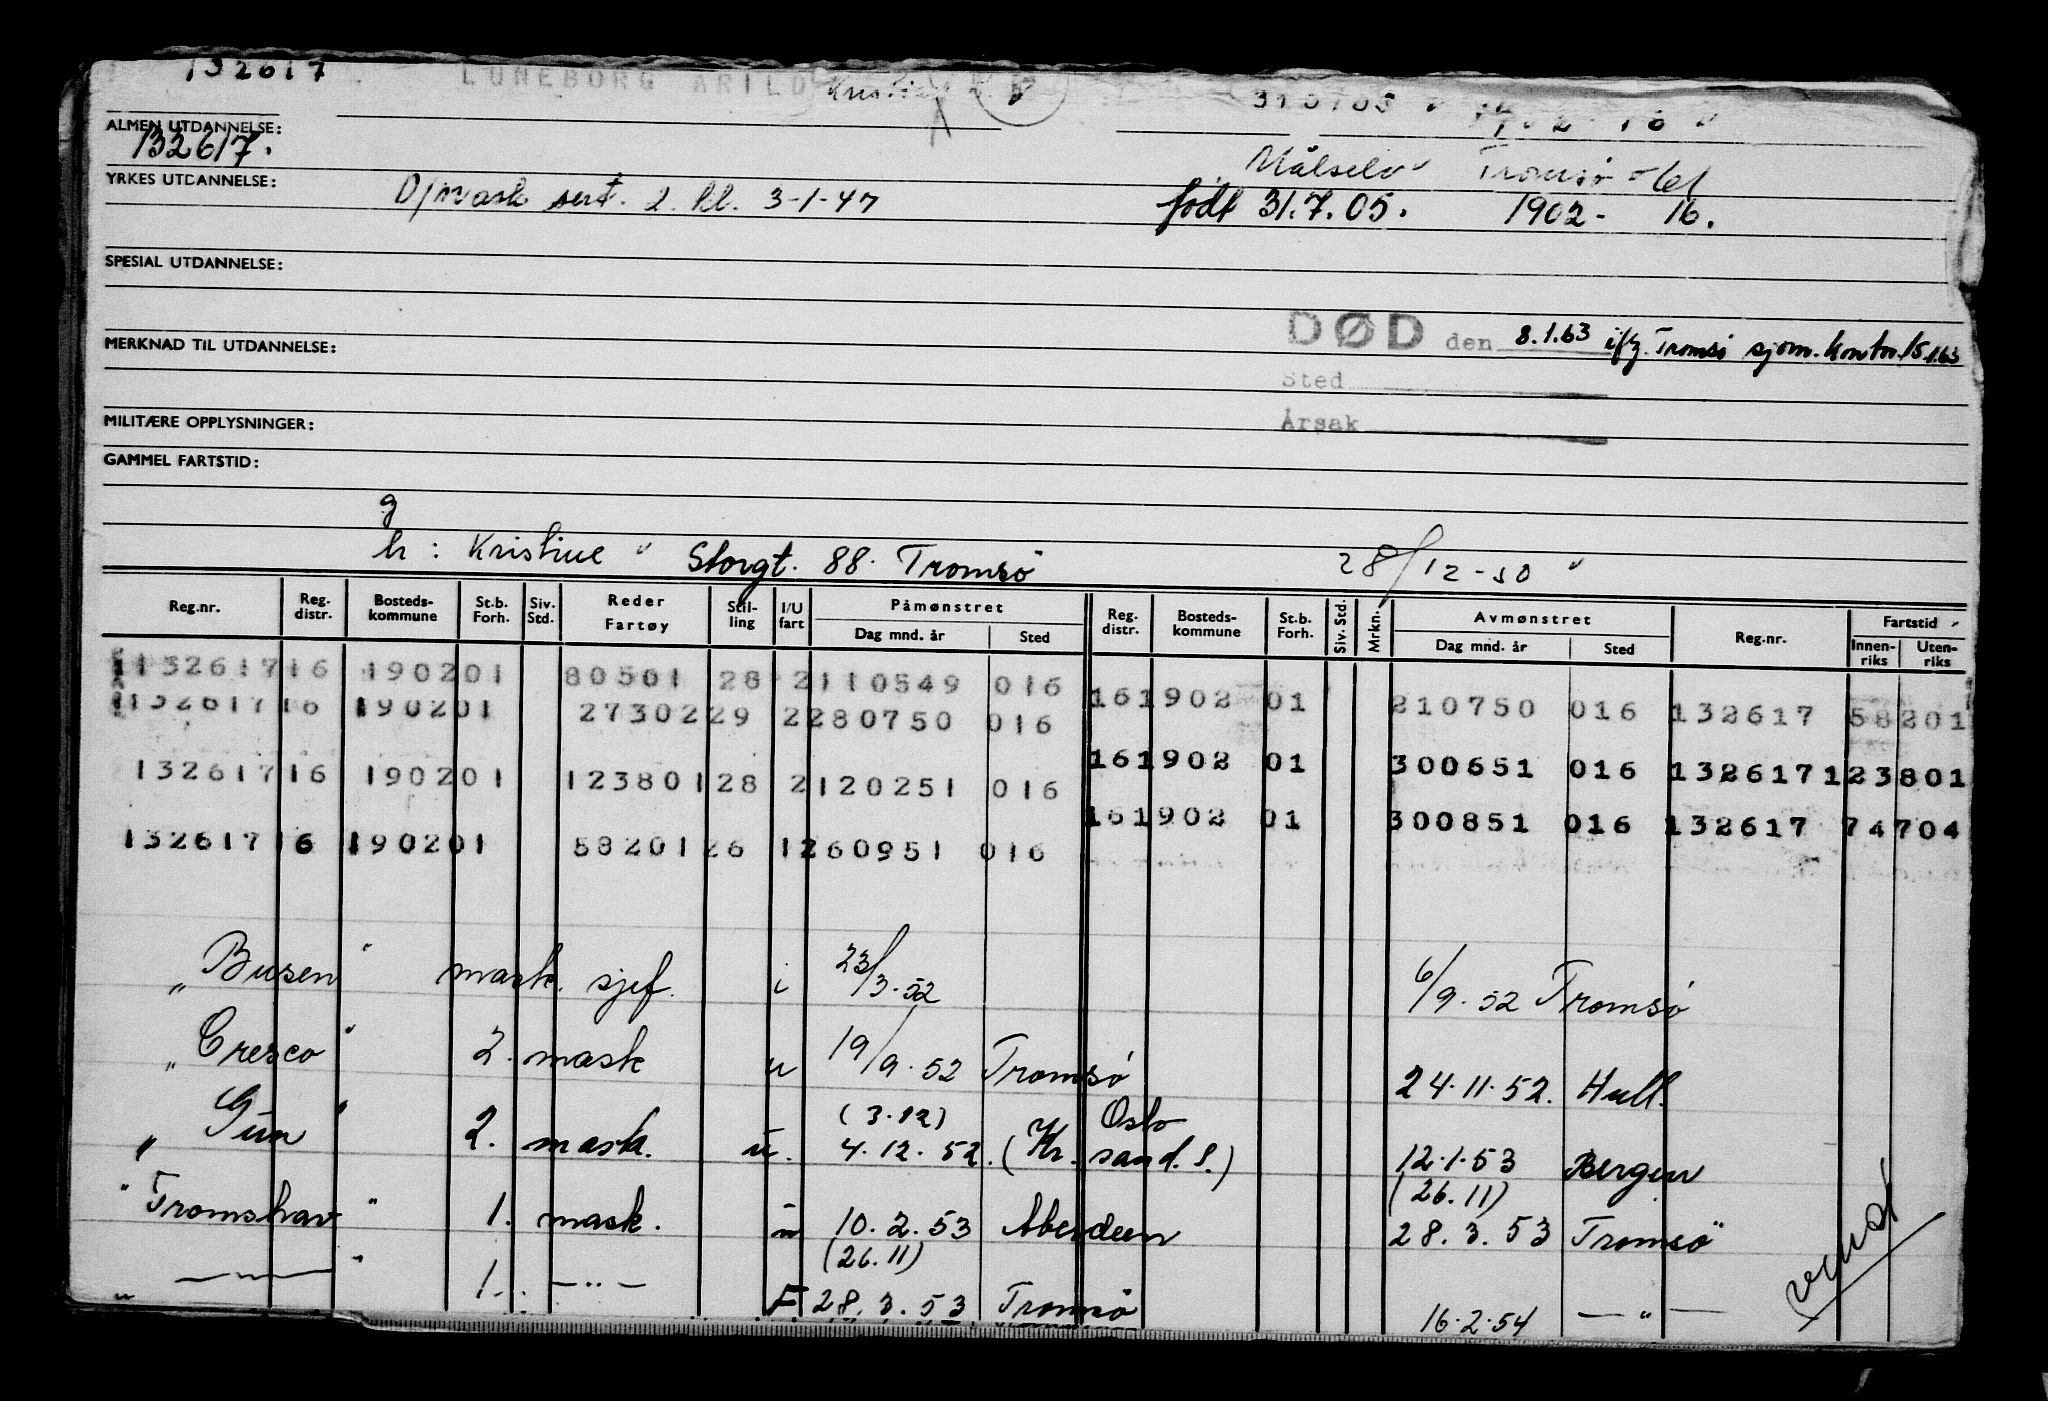 132617 LUNEBORG ARILD 310705 1902 16
ALMEN UTDANNELSE:
132617. Målselv Tromsø
YRKES UTDANNELSE: D/mask sert. 2. kl. 3-1-47 født 31.7.05. 1902- 16.
SPESIAL UTDANNELSE:
MERKNAD TIL UTDANNELSE: DØD den 8.1.63 i/f. Tromsø sjøm. kontor 15.1.63
Sted
MILITÆRE OPPLYSNINGER: Årsak
GAMMEL FARTSTID:
g
h: Kristine Storgt. 88. Tromsø 28/12-50
Reg.nr. Reg. distr. Bosteds-kommune St.b. Forh. Siv. Std. Reder Fartøy Stil-ling I/U fart Påmønstret Reg. distr. Bosteds-kommune St.b. Forh. Siv. Std. Mrkn. Avmønstret Reg.nr. Fartstid
Dag mnd. år Sted Dag mnd. år Sted Innen-riks Uten-riks
132617 16 1902 01 80501 28 2 110549 016 16 1902 01 210750 016 132617 58201
132617 16 1902 01 27302 29 2 280750 016 16 1902 01 300651 016 132617 123801
132617 16 1902 01 123801 28 2 120251 016 16 1902 01 300851 016 132617 74704
132617 16 1902 01 58201 26 1 260951 016
„Busen" mask. sjef. i 23/3.52 6/9.52 Tromsø
„Cresco" 2. mask u 19/9.52 Tromsø 24.11.52. Hull.
(3.12) Oslo
„Gun" 2. mask. u. 4.12.52. (Kr. sand. S.) 12.1.53 Bergen
(26.11)
"Tromshav" 1. mask. u 10.2.53 Aberdeen 28.3.53 Tromsø
(26.11)
„ —"— " 1. —"— F 28.3.53 Tromsø 16.2.54 —"—
vend